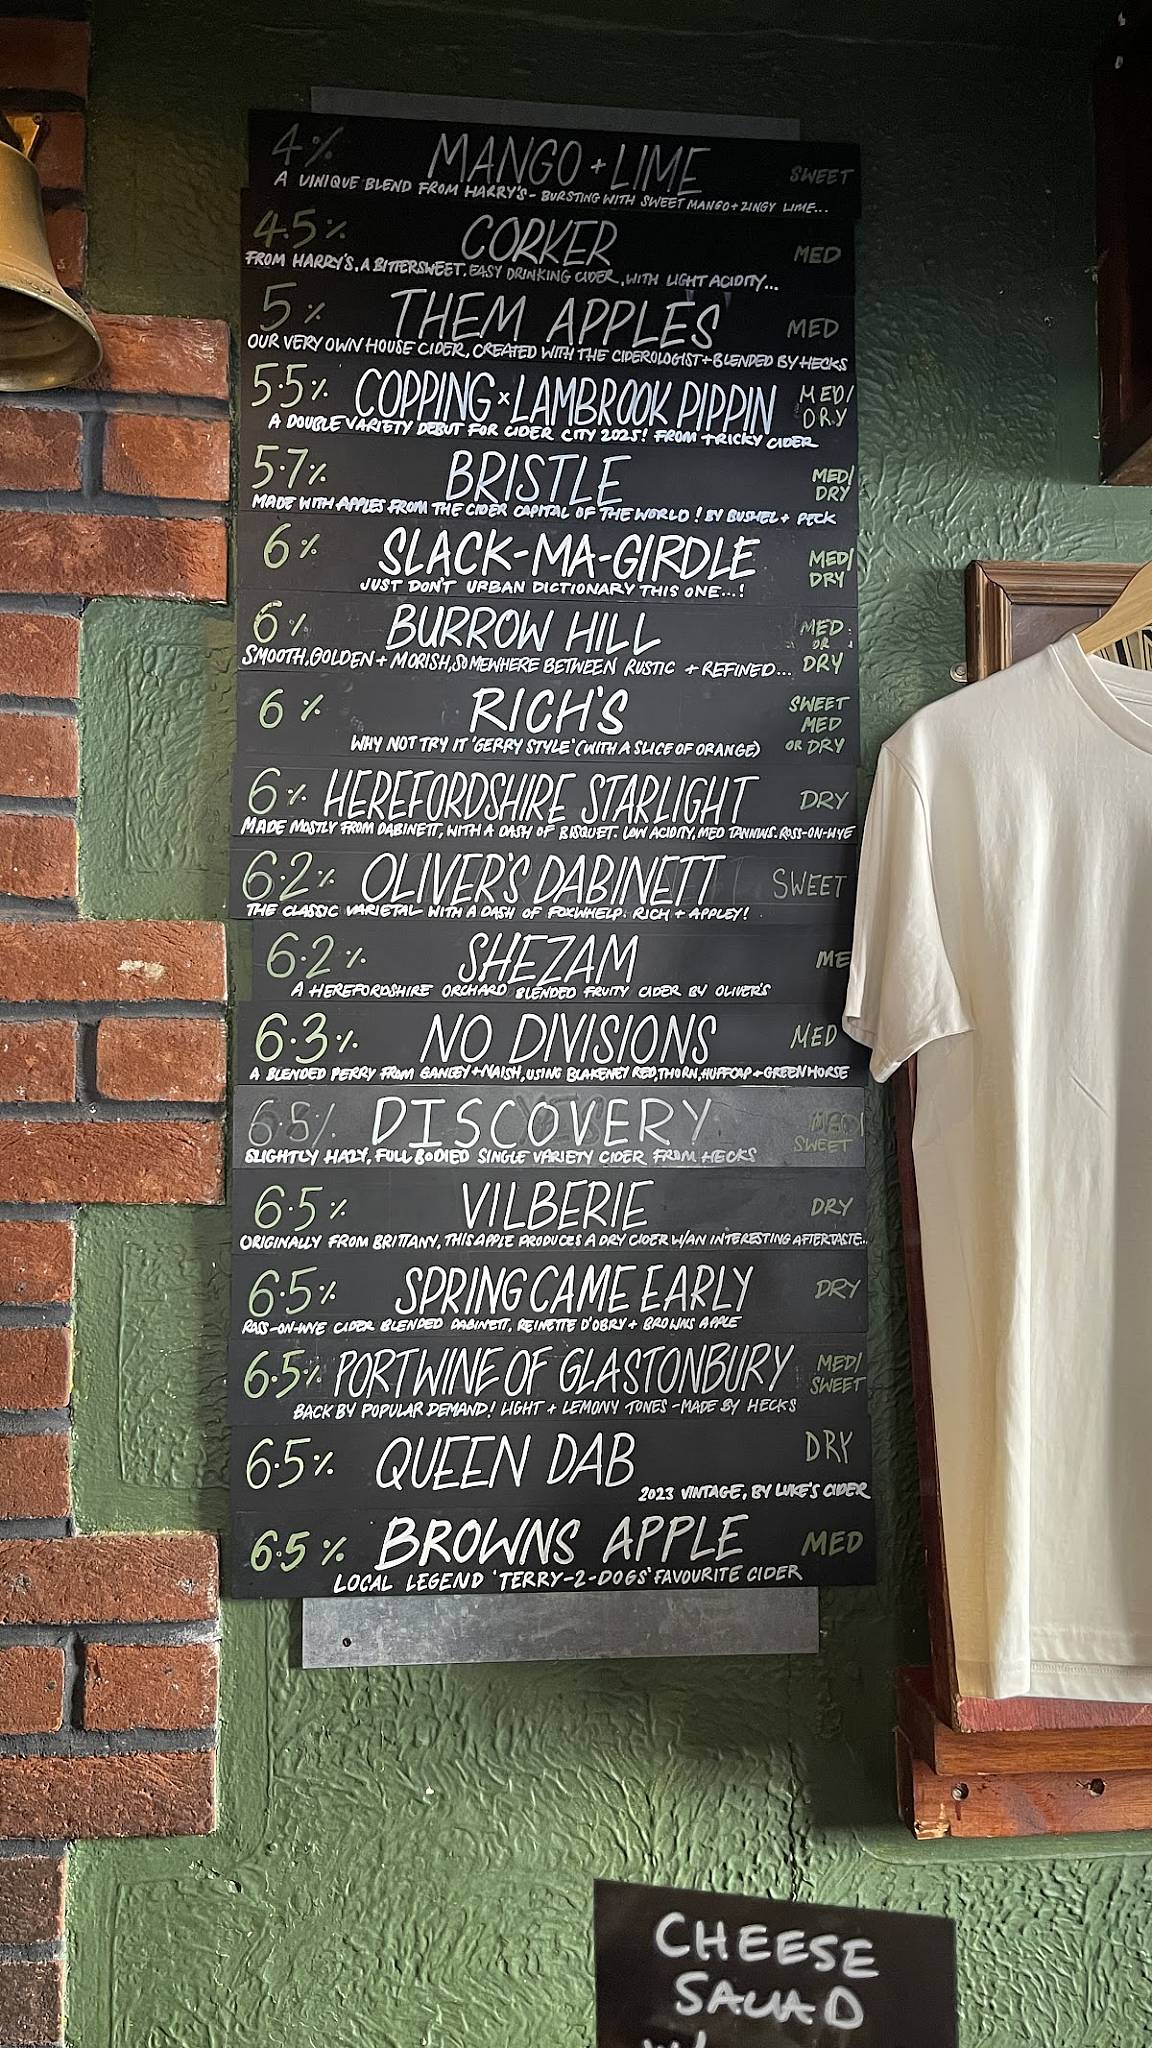 4% MANGO + LIME SWEET
A UNIQUE BLEND FROM HARRY'S - BURSTING WITH SWEET MANGO + ZINGY LIME...
4.5% CORKER MED
FROM HARRY'S, A BITTERSWEET, EASY DRINKING CIDER, WITH LIGHT ACIDITY...
5% 'THEM APPLES' MED
OUR VERY OWN HOUSE CIDER, CREATED WITH THE CIDEROLOGIST + BLENDED BY HECKS
5.5% COPPING × LAMBROOK PIPPIN MED/
DRY
A DOUBLE VARIETY DEBUT FOR CIDER CITY 2025! FROM TRICKY CIDER
5.7% BRISTLE MED/
DRY
MADE WITH APPLES FROM THE CIDER CAPITAL OF THE WORLD! BY BUSHEL + PECK
6% SLACK-MA-GIRDLE MED/
DRY
JUST DON'T URBAN DICTIONARY THIS ONE...!
6% BURROW HILL MED
OR
DRY
SMOOTH, GOLDEN + MORISH, SOMEWHERE BETWEEN RUSTIC + REFINED...
6% RICH'S SWEET
MED
OR DRY
WHY NOT TRY IT 'GERRY STYLE' (WITH A SLICE OF ORANGE)
6% HEREFORDSHIRE STARLIGHT DRY
MADE MOSTLY FROM DABINETT, WITH A DASH OF BISQUET. LOW ACIDITY, MED TANNINS. ROSS-ON-WYE
6.2% OLIVER'S DABINETT SWEET
THE CLASSIC VARIETAL WITH A DASH OF FOXWHELP. RICH + APPLEY!
6.2% SHEZAM ME
A HEREFORDSHIRE ORCHARD BLENDED FRUITY CIDER BY OLIVER'S
6.3% NO DIVISIONS MED
A BLENDED PERRY FROM GANLEY + NAISH, USING BLAKENEY RED, THORN, HUFFCAP + GREEN HORSE
6.5% DISCOVERY MED/
SWEET
SLIGHTLY HAZY, FULL BODIED SINGLE VARIETY CIDER FROM HECKS
6.5% VILBERIE DRY
ORIGINALLY FROM BRITTANY, THIS APPLE PRODUCES A DRY CIDER W/AN INTERESTING AFTERTASTE...
6.5% SPRING CAME EARLY DRY
ROSS-ON-WYE CIDER BLENDED DABINETT, REINETTE D'OBRY + BROWNS APPLE
6.5% PORT WINE OF GLASTONBURY MED/
SWEET
BACK BY POPULAR DEMAND! LIGHT + LEMONY TONES - MADE BY HECKS
6.5% QUEEN DAB DRY
2023 VINTAGE, BY LUKE'S CIDER
6.5% BROWNS APPLE MED
LOCAL LEGEND 'TERRY-2-DOGS' FAVOURITE CIDER
CHEESE
SALAD
W/